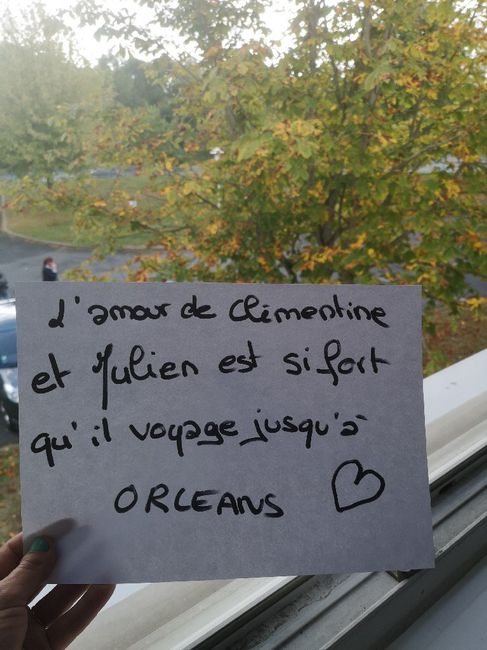 L'amour de Clémentine
et Julien est si fort
qu'il voyage jusqu'à
ORLEANS